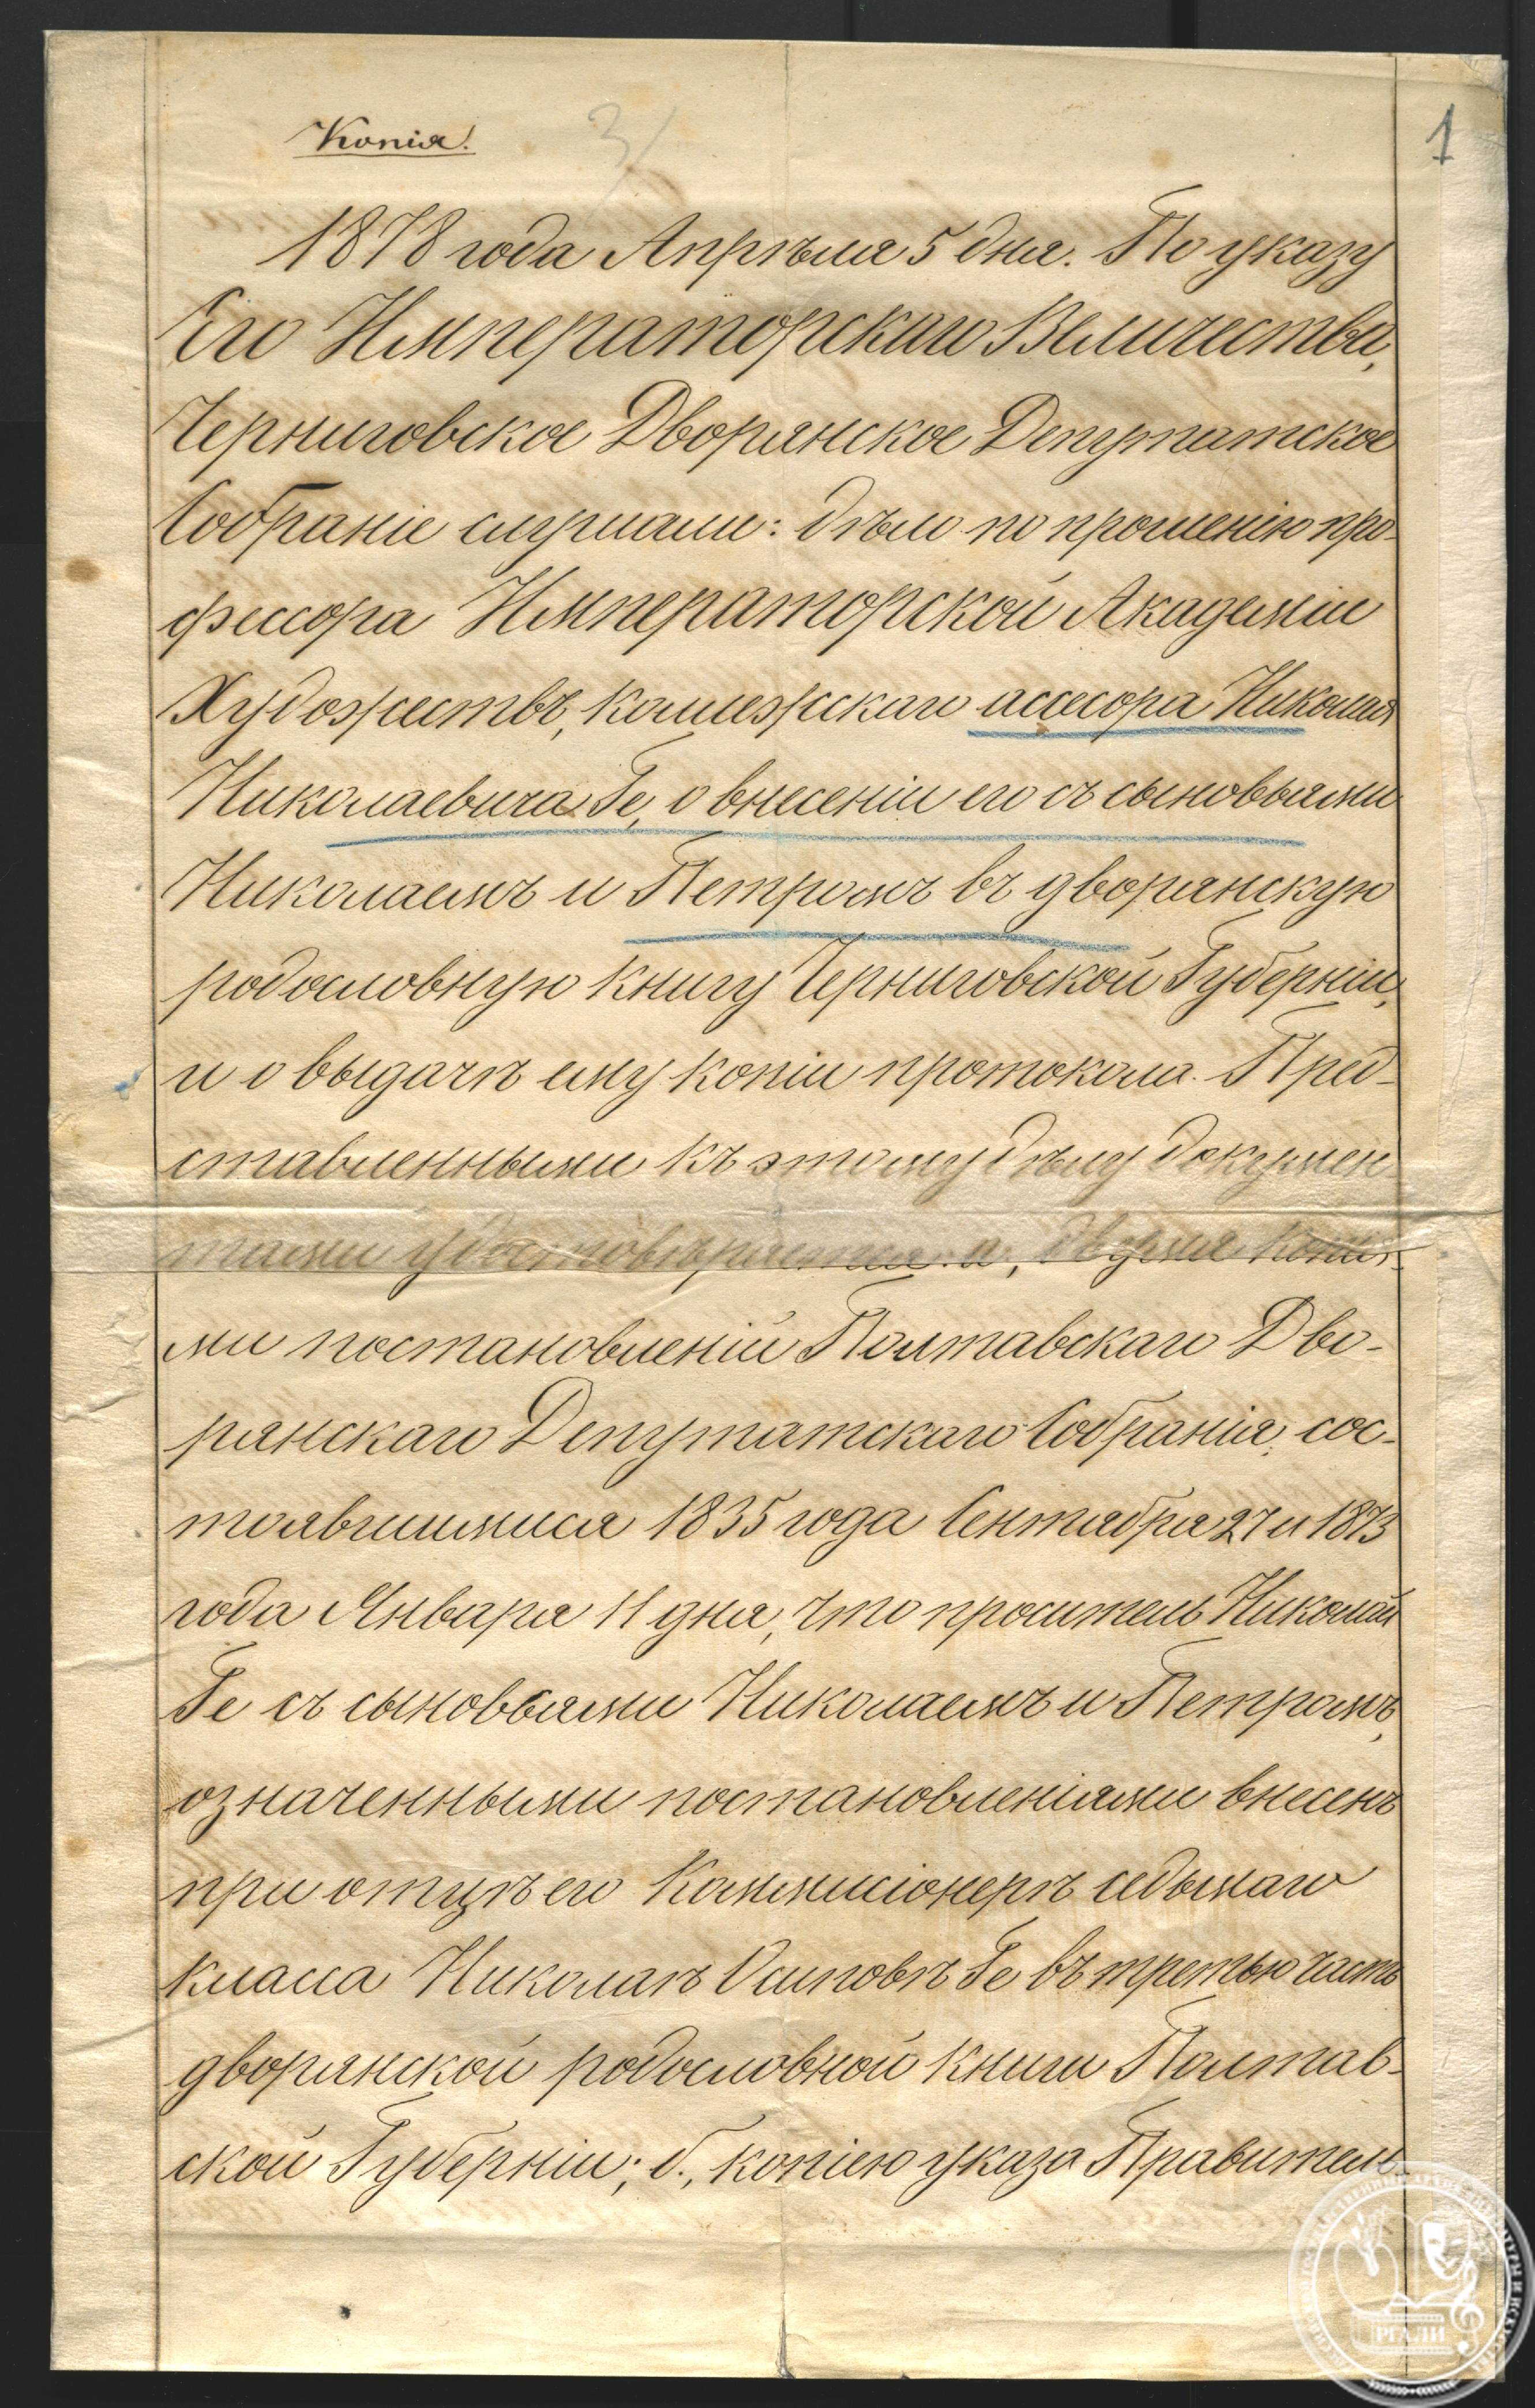 Копія.
3/
1
1878 года Апрѣля 5 дня. По указу
Его Императорскаго Величества,
Черниговское Дворянское Депутатское
Собраніе слушали: дѣло по прошенію про-
фессора Императорской Академіи
Художествъ, коллежскаго ассесора Николая
Николаевича Ге, о внесеніи его съ сыновьями
Николаемъ и Петромъ въ дворянскую
родословную книгу Черниговской Губерніи,
и о выдачѣ ему копіи протокола. Пред-
ставленными къ этому дѣлу докумен-
тами удостовѣряется: а, двумя копія-
ми постановленій Полтавскаго Дво-
рянскаго Депутатскаго Собранія, сос-
тоявшимися 1835 года Сентября 27 и 1873
года Января 11 дня, что проситель Николай
Ге съ сыновьями Николаемъ и Петромъ,
означенными постановленіями внесенъ
при отцѣ его Коммисіонерѣ седьмаго
класса Николаѣ Осиповѣ Ге въ третью часть
дворянской родословной книги Полтав-
ской Губерніи; б., копіею указа Правитель-
РГАЛИ